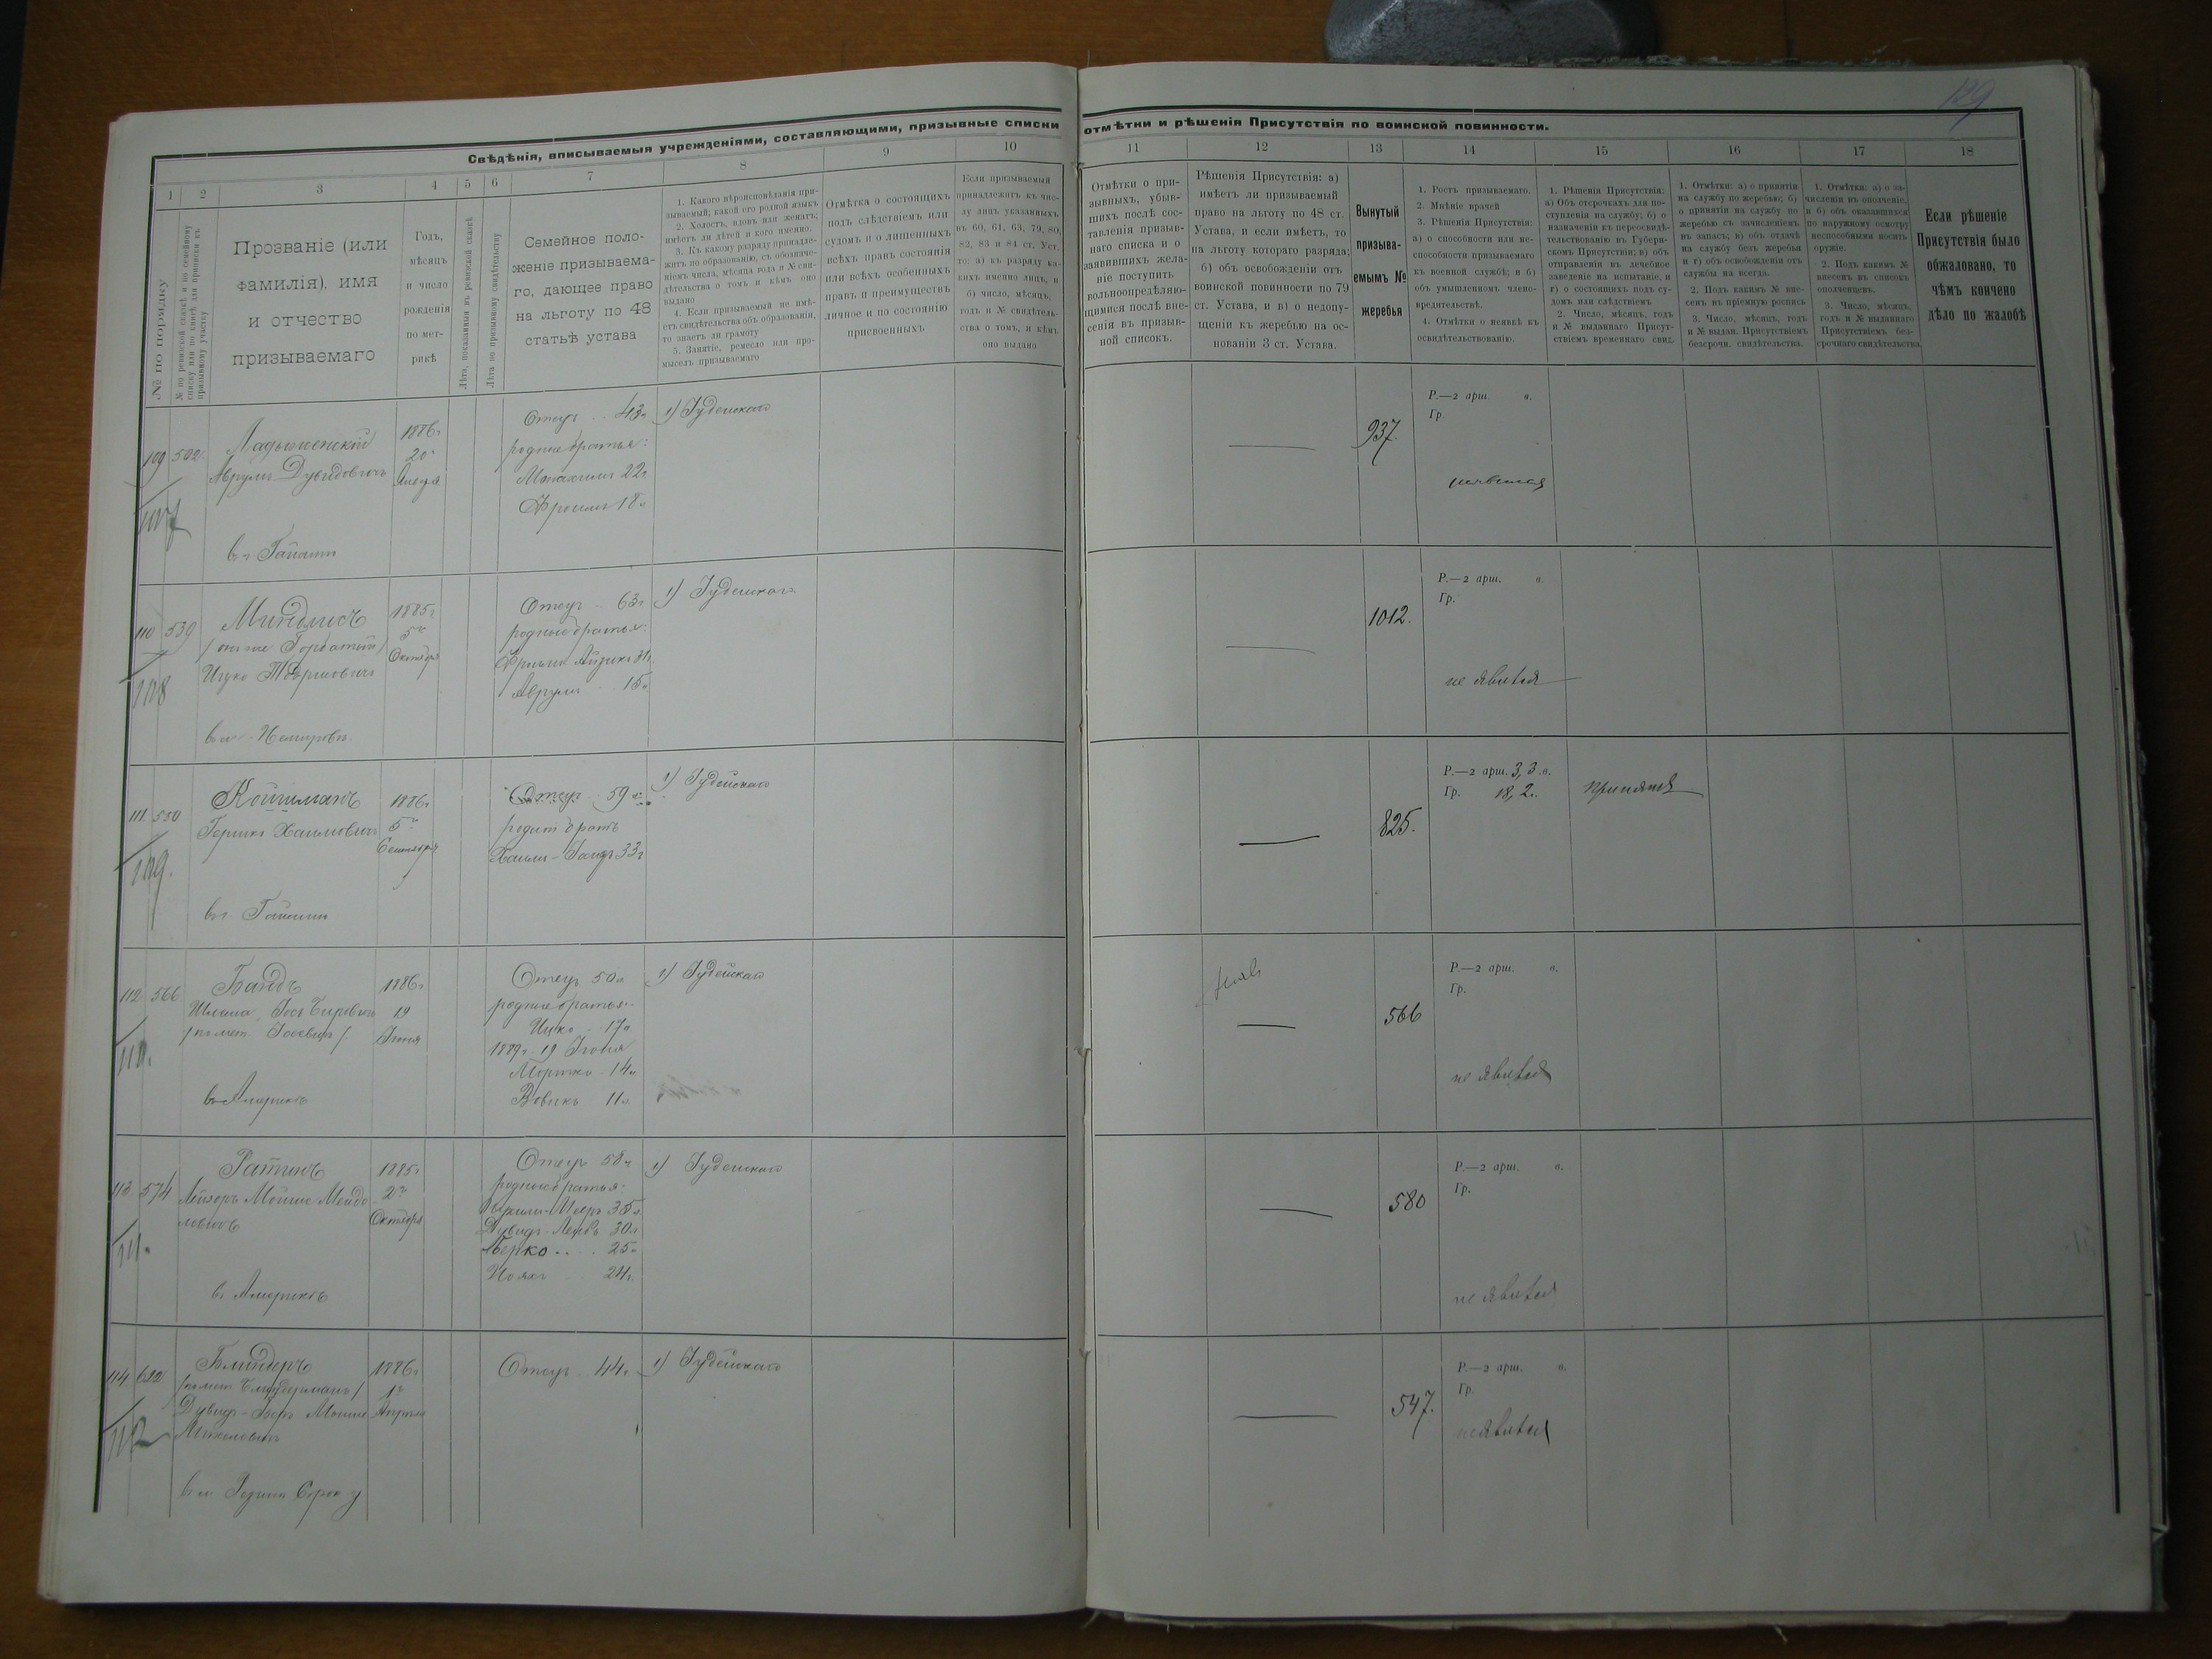 129
Свѣдѣнія, вписываемыя учрежденіями, составляющими, призывные списки
отмѣтки и рѣшенія Присутствія по воинской повинности.
1 2 3 4 5 6 7 8 9 10
11 12 13 14 15 16 17 18
№ по порядку
№ по ревизской сказкѣ и по семейному
списку или по книгѣ для приписки къ
призывному участку
Прозваніе (или
фамилія), имя
и отчество
призываемаго
Годъ,
мѣсяцъ
и число
рожденія
по мет-
рикѣ
Лѣта, показанныя въ ревизской сказкѣ
Лѣта по призывному свидѣтельству
Семейное поло-
женіе призываема-
го, дающее право
на льготу по 48
статьѣ устава
1. Какого вѣроисповѣданія при-
зываемый; какой его родной языкъ
2. Холостъ, вдовъ или женатъ;
имѣетъ ли дѣтей и кого именно.
3. Къ какому разряду принадле-
житъ по образованію, съ обозначе-
ніемъ числа, мѣсяца года и № сви-
дѣтельства о томъ и кѣмъ оно
выдано
4. Если призываемый не имѣ-
етъ свидѣтельства объ образованіи,
то знаетъ ли грамоту
5. Занятіе, ремесло или про-
мыселъ призываемаго
Отмѣтка о состоящихъ
подъ слѣдствіемъ или
судомъ и о лишенныхъ
всѣхъ правъ состоянія
или всѣхъ особенныхъ
правъ и преимуществъ
личное и по состоянію
присвоенныхъ
Если призываемый
принадлежитъ къ чис-
лу лицъ указанныхъ
въ 60, 61, 63, 79, 80,
82, 83 и 84 ст. Уст.
то: а) къ разряду ка-
кихъ именно лицъ, и
б) число, мѣсяцъ,
годъ и № свидѣтель-
ства о томъ, и кѣмъ
оно выдано
Отмѣтки о при-
зывныхъ, убыв-
шихъ послѣ сос-
тавленія призыв-
наго списка и о
заявившихъ жела-
ніе поступить
вольноопредѣляю-
щимися послѣ вне-
сенія въ призыв-
ной списокъ.
Рѣшенія Присутствія: а)
имѣетъ ли призываемый
право на льготу по 48 ст.
Устава, и если имѣетъ, то
на льготу котораго разряда;
б) объ освобожденіи отъ
воинской повинности по 79
ст. Устава, и в) о недопу-
щеніи къ жеребью на ос-
нованіи 3 ст. Устава.
Вынутый
призыва-
емымъ №
жеребья
1. Ростъ призываемаго.
2. Мнѣніе врачей
3. Рѣшенія Присутствія:
а) о способности или не-
способности призываемаго
къ военной службѣ; и б)
объ умышленномъ члено-
вредительствѣ.
4. Отмѣтки о неявкѣ къ
освидѣтельствованію.
1. Рѣшенія Присутствія:
а) Объ отсрочкахъ для по-
ступленія на службу; б) о
назначеніи къ переосвидѣ-
тельствованію въ Губерн-
скомъ Присутствіи; в) объ
отправленіи въ лечебное
заведеніе на испытаніе, и
г) о состоящихъ подъ су-
домъ или слѣдствіемъ
2. Число, мѣсяцъ, годъ
и № выданнаго Присут-
ствіемъ временнаго свид.
1. Отмѣтки: а) о принятіи
на службу по жеребью; б)
о принятіи на службу по
жеребью съ зачисленіемъ
въ запасъ; в) объ отдачѣ
на службу безъ жеребья
и г) объ освобожденіи отъ
службы на всегда.
2. Подъ какимъ № вне-
сенъ въ пріемную роспись
3. Число, мѣсяцъ, годъ
и № выдан. Присутствіемъ
безсрочн. свидѣтельства.
1. Отмѣтки: а) о за-
численіи въ ополченіе,
и б) объ оказавшихся
по наружному осмотру
неспособными носить
оружіе.
2. Подъ какимъ №
внесенъ въ списокъ
ополченцевъ.
3. Число, мѣсяцъ,
годъ и № выданнаго
Присутствіемъ без-
срочнаго свидѣтельства
Если рѣшеніе
Присутствія было
обжаловано, то
чѣмъ кончено
дѣло по жалобѣ
109 502
107
Ладыженскій
Аврумъ Дувидовичъ
въ г Гайсинѣ
1886г
20
Апреля
Отецъ 43л
родные братья:
22г
Фроимъ 18л
1) Іудейскаго
937.
Р.—2 арш. в.
Гр.
неявился
110 539
108
Миндлисъ
Горбатый
Ицко
въ м. Немировѣ
1885г
5го
Октября
Отецъ 63г
родные братья:
Фроимъ Айзикъ 31г
Аврумъ 15л
1) Іудейскаго
1012.
Р.—2 арш. в.
Гр.
не явился
111 550
109.
Койшманъ
Гершко Хаимовичъ
въ г. Гайсинѣ
1886г
5го
Сентября
Отецъ 59л
родной братъ
33г
1) Іудейскаго
825.
Р.—2 арш. 3,3 в.
Гр. 18,2.
принятъ
112 566
110.
Бандъ
Шлома
въ Америкѣ
1886г
19
Іюня
Отецъ 50л
родные братья
Ицко 17л
1889г. 19 Іюня
Мортко 14л
Вовикъ 11л
1) Іудейскаго
566
Р.—2 арш. в.
Гр.
не явился
113 574
111.
Ратинъ
Лейзоръ Мойше Мендо
ловичъ
въ Америкѣ
1885г
2го
Октября
Отецъ 58л
родные братья
35л
Дувидъ-Лейбъ 30л
Берко 25л
24г.
1) Іудейскаго
580
Р.—2 арш. в.
Гр.
не явился
114 622
112
Блиндеръ
Дувидъ-Беръ Мойше
1886г
1го
Апреля
Отецъ 44г
1) Іудейскаго
547.
Р.—2 арш. в.
Гр.
неявился